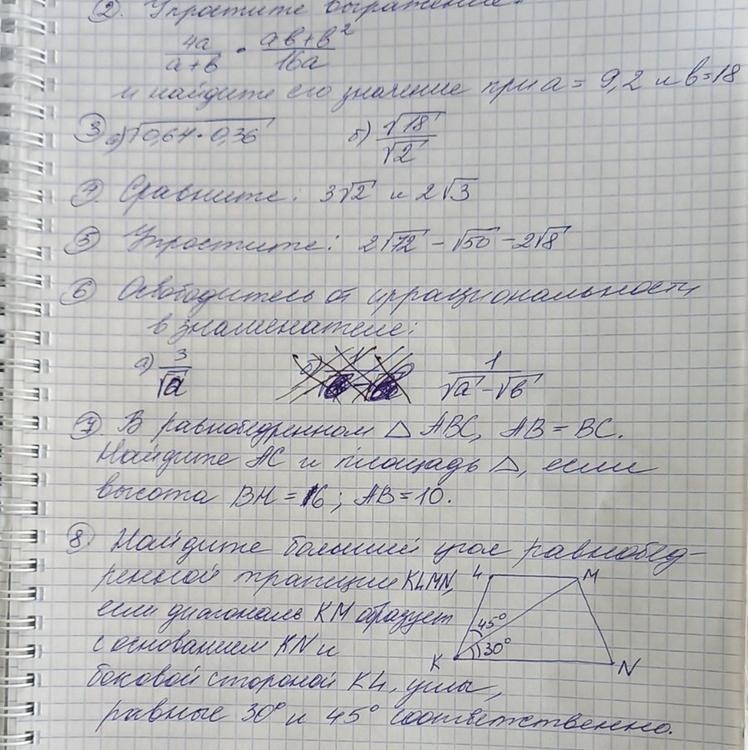 ② Упростите выражение:
4a/(a+b) · (ab+b²)/16a
и найдите его значение при a = 9,2 и b=18
③ а) √(0,64·0,36) б) √18/√2
④ Сравните: 3√2 и 2√3
⑤ Упростите: 2√72 − √50 − 2√8
⑥ Освободитесь от иррациональности
в знаменателе:
а) 3/√a 1/(√a − √b)
⑦ В равнобедренном △ ABC, AB = BC.
Найдите AC и площадь △, если
высота BH = 6; AB = 10.
⑧ Найдите больший угол равнобед-
ренной трапеции KLMN,
если диагональ KM образует
с основанием KN и
боковой стороной KL, углы,
равные 30° и 45° соответственно.
L M
45°
30°
K N